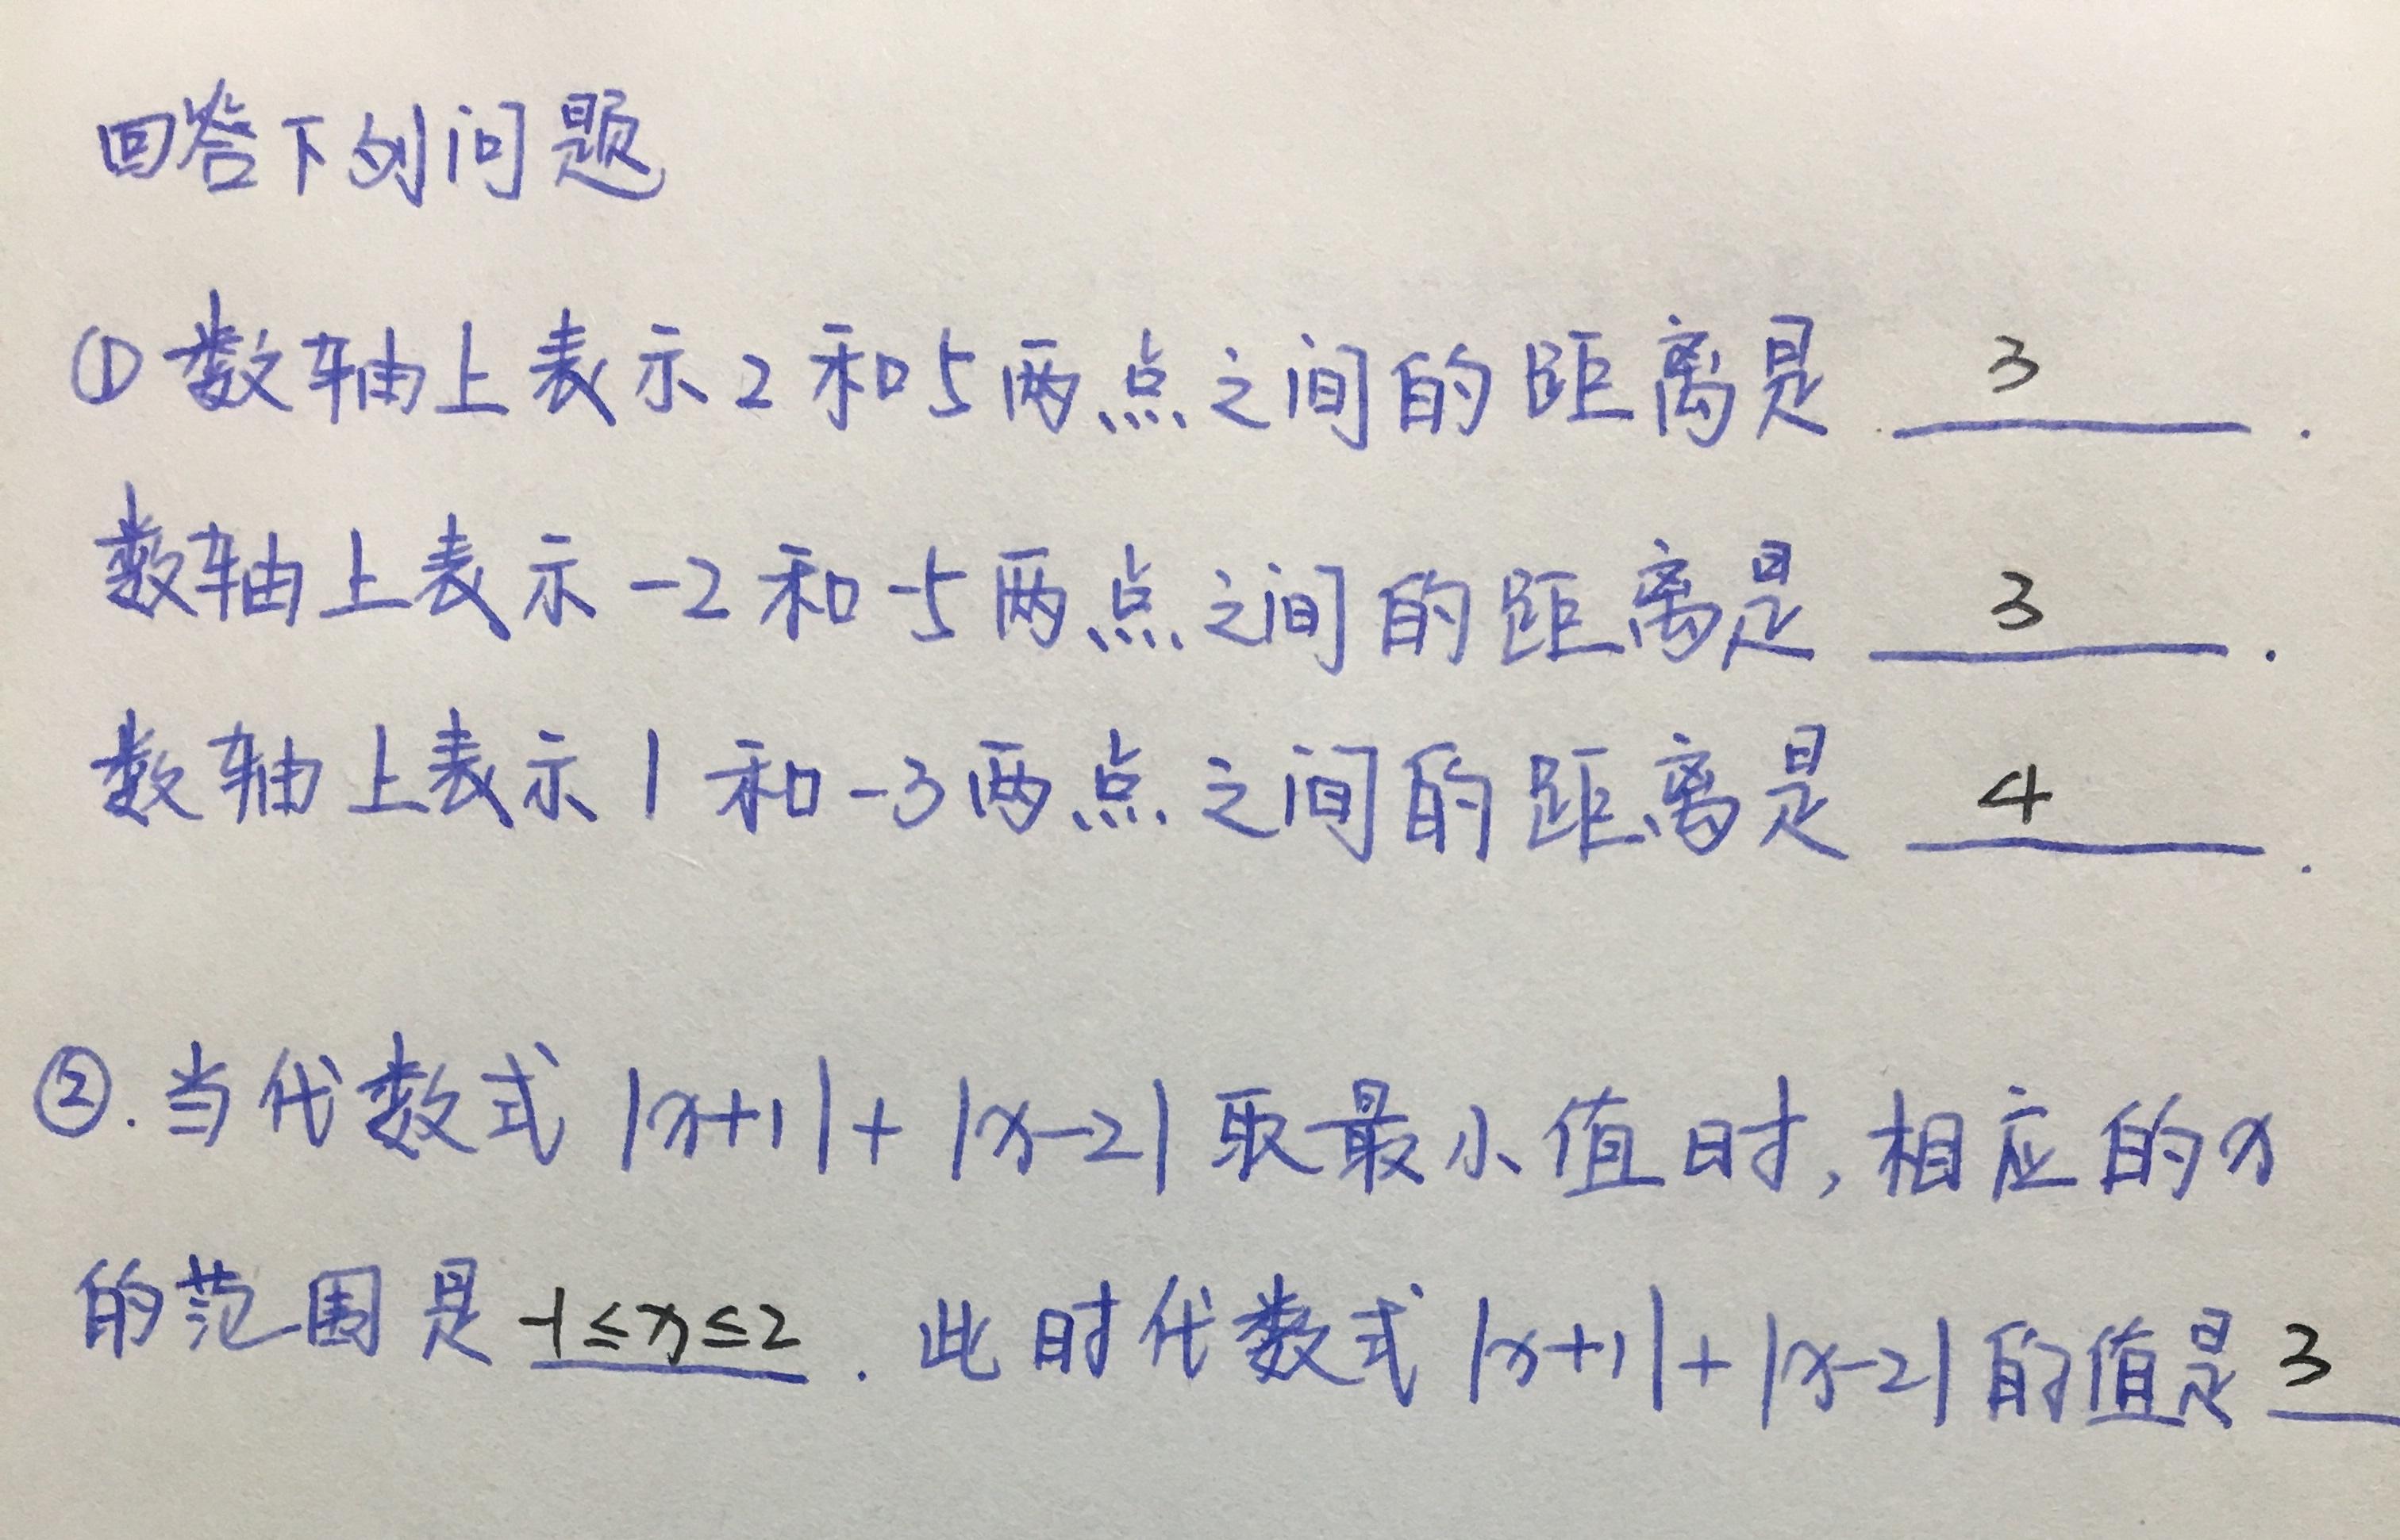 回答下列问题
①数轴上表示2和5两点之间的距离是 3 .
数轴上表示-2和-5两点之间的距离是 3 .
数轴上表示1和-3两点之间的距离是 4 .
②.当代数式|x+1|+|x-2|取最小值时,相应的x
的范围是-1≤x≤2.此时代数式|x+1|+|x-2|的值是3